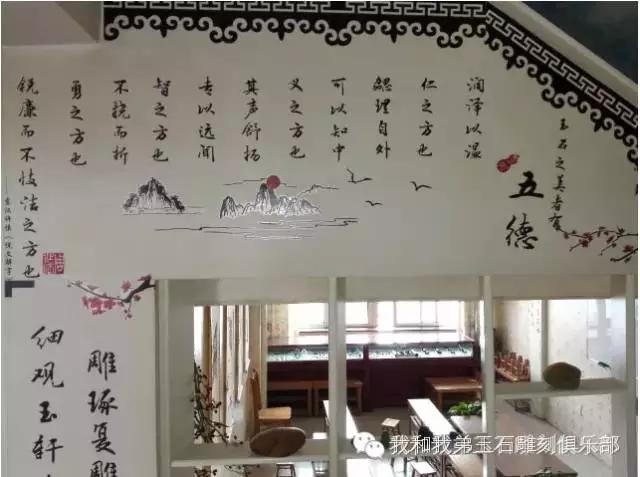 玉石之美者有
五德
润泽以温
仁之方也
鳃理自外
可以知中
义之方也
其声舒扬
专以远闻
智之方也
不挠而折
勇之方也
锐廉而不忮洁之方也
——东汉许慎《说文解字》
雕琢复雕
细观玉轩
我和我弟玉石雕刻俱乐部